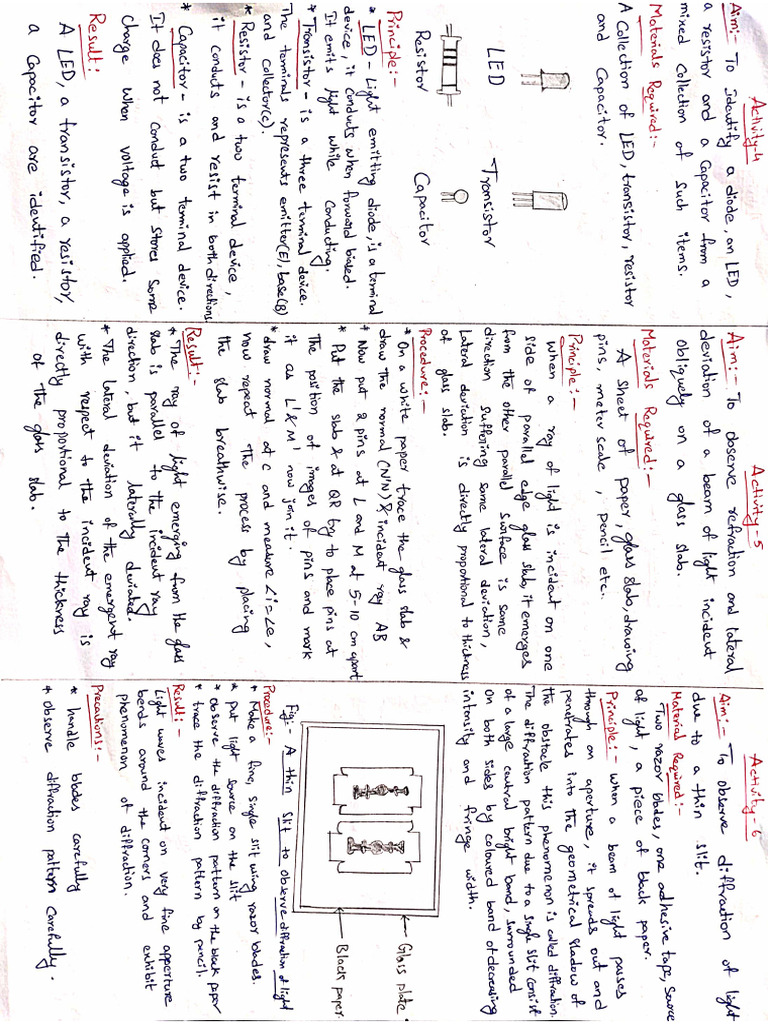 Activity-4
Aim:- To Identify a diode, an LED,
a resistor and a Capacitor from a
mixed collection of such items.
Materials Required:-
A Collection of LED, transistor, resistor
and Capacitor.
LED
Transistor
Resistor
Capacitor
Principle:-
* LED - Light emitting diode, is a terminal
device, it conducts when forward biased.
It emits light while Conducting.
* Transistor - is a three terminal device.
The terminals represents emitter(E), base(B)
and collector(c).
* Resistor - is a two terminal device,
it conducts and resist in both directions
* Capacitor - is a two terminal device.
It does not conduct but stores some
charge when voltage is applied.
Result:
A LED, a transistor, a resistor,
a Capacitor are identified.
Activity-5
Aim:- To observe refraction and lateral
deviation of a beam of light incident
obliquely on a glass slab.
Materials Required:-
A sheet of paper, glass slab, drawing
pins, meter scale, pencil etc.
Principle:-
when a ray of light is incident on one
side of parallel edge glass slab, it emerges
from the other parallel surface is same
direction suffering some lateral deviation,
Lateral deviation is directly proportional to thickness
of glass slab.
Procedure:-
* On a white paper trace the glass slab &
draw the normal (N'N) & incident ray AB
* Now put 2 pins at L and M at 5-10 cm apart
* Put the slab & at QR by to place pins at
The position of images of pins and mark
it as L' & M' now join it.
* draw normal at c and measure ∠i=∠e,
now repeat The process by placing
the slab breathwise.
Result:-
* The ray of light emerging from the glass
slab is parallel to the incident ray
direction, but it laterally deviated.
* The lateral deviation of the emergent ray
with respect to the incident ray is
directly proportional to the thickness
of the glass slab.
Activity-6
Aim:- To observe diffraction of light
due to a thin slit.
Material Required:-
Two razor blades, one adhesive tape, source
of light, a piece of black paper.
Principle:- when a beam of light passes
through an aperture, it spreads out and
penetrates into The geometrical shadow of
the obstacle this phenomenon is called diffraction.
The diffraction pattern due to a single slit consist
of a large central bright band, surrounded
on both sides by coloured band of decreasing
intensity and fringe width.
Glass plate.
Black paper.
Fig:- A thin slit to observe diffraction of light
Procedure:-
* Make a fine, single slit using razor blades.
* put light source on the slit
* observe the diffraction pattern on the black paper
* trace the diffraction pattern by pencil.
Result:-
Light waves incident on very fine apperture
bends around the corners and exhibit
phenomenon of diffraction.
Precautions:-
* handle blades carefully
* observe diffraction pattern carefully.